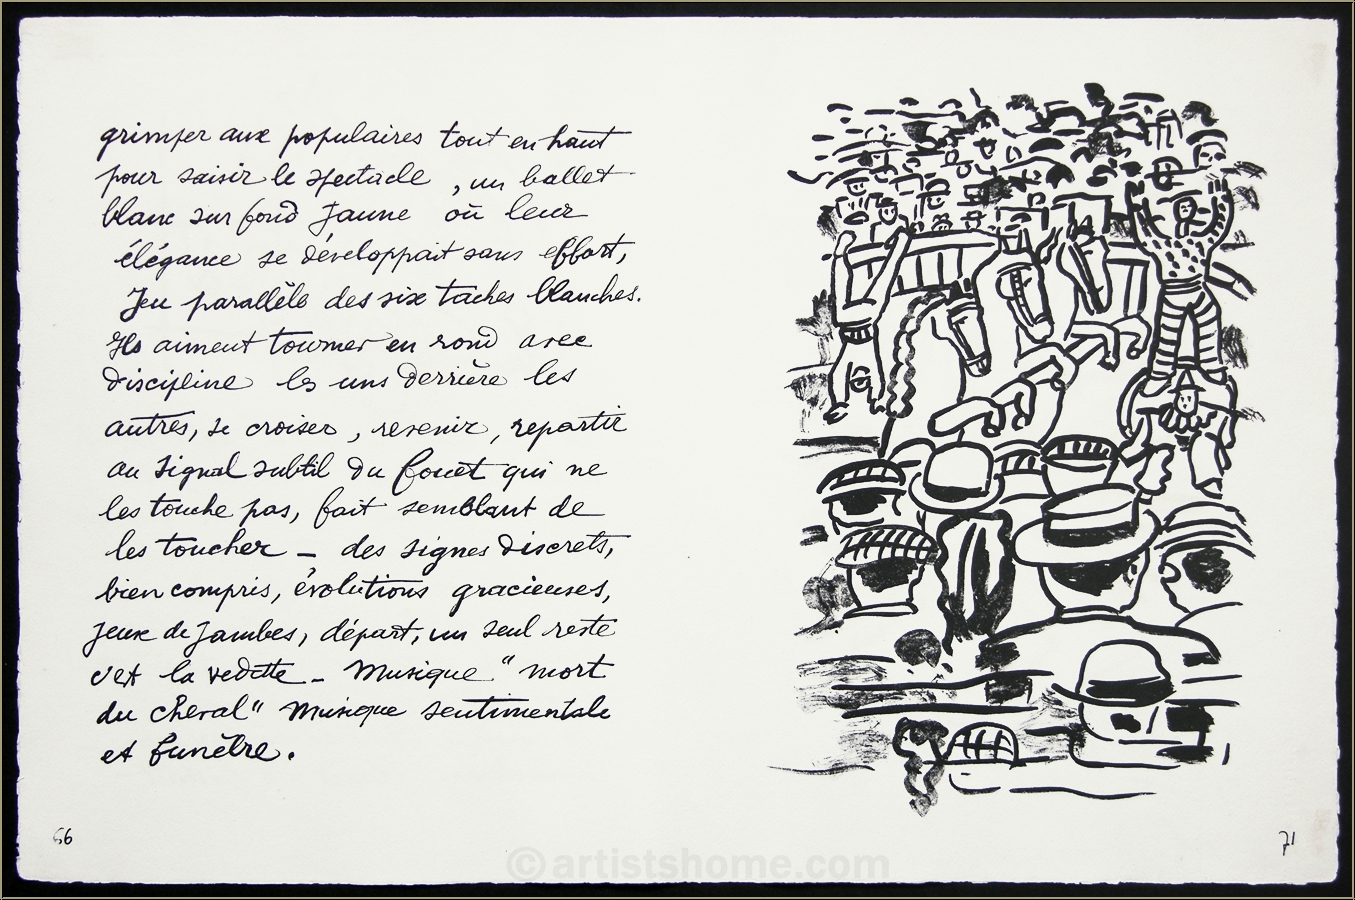 grimper aux populaires tout en haut
pour saisir le spectacle, un ballet
blanc sur fond jaune où leur
élégance se développait sans effort,
Jeu parallèle des six taches blanches.
Ils aiment tourner en rond avec
discipline les uns derrière les
autres, se croiser, revenir, repartir
au signal subtil du fouet qui ne
les touche pas, fait semblant de
les toucher - des signes discrets,
bien compris, évolutions gracieuses,
jeux de jambes, départ, un seul reste
c'est la vedette - Musique "mort
du cheval" Musique sentimentale
et funèbre.
66
71
©artistshome.com